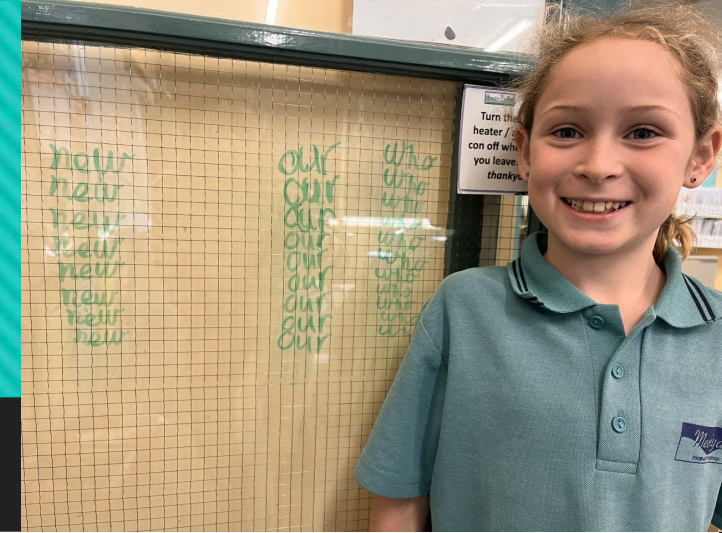 new
new
new
new
new
new
new
new
our
our
our
our
our
our
our
our
our
who
who
who
who
who
who
who
who
who
who
who
Turn the
heater /
con off
you leave.